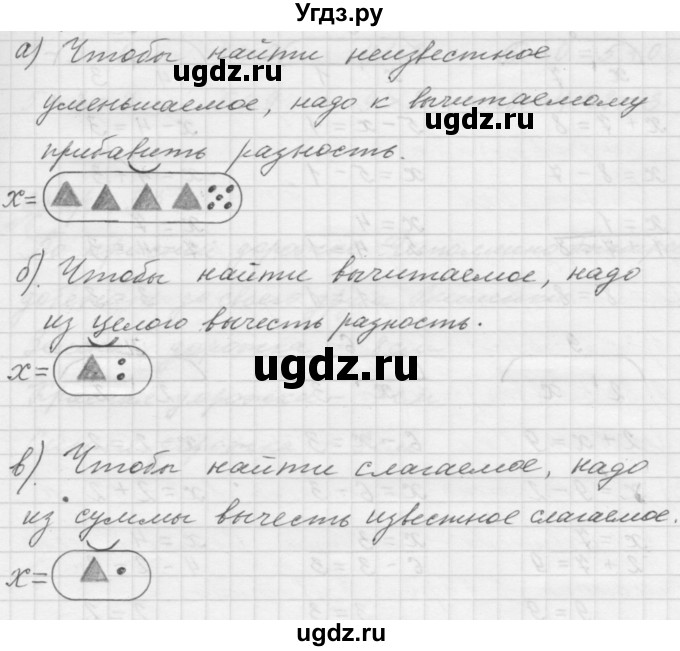 Угдз.ру
а) Чтобы найти неизвестное
ugdz.ru
ugdz.ru
уменьшаемое, надо к вычитаемому
прибавить разность.
x=
б). Чтобы найти вычитаемое, надо
из целого вычесть разность.
ugdz.ru
x=
в). Чтобы найти слагаемое, надо
из суммы вычесть известное слагаемое.
ugdz.ru
ugdz.ru
x=
ugdz.ru